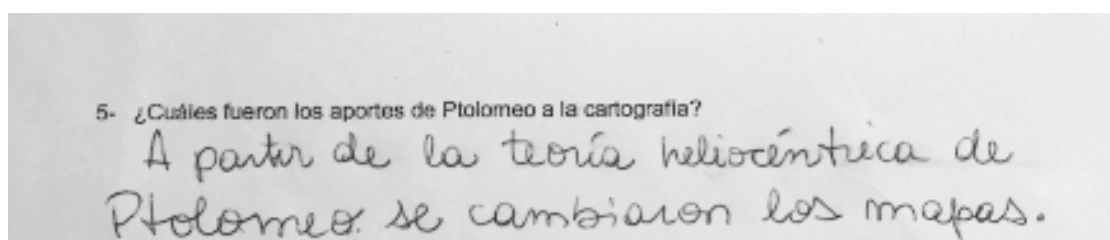 5- ¿Cuáles fueron los aportes de Ptolomeo a la cartografía?
A partir de la teoría heliocéntrica de
Ptolomeo se cambiaron los mapas.